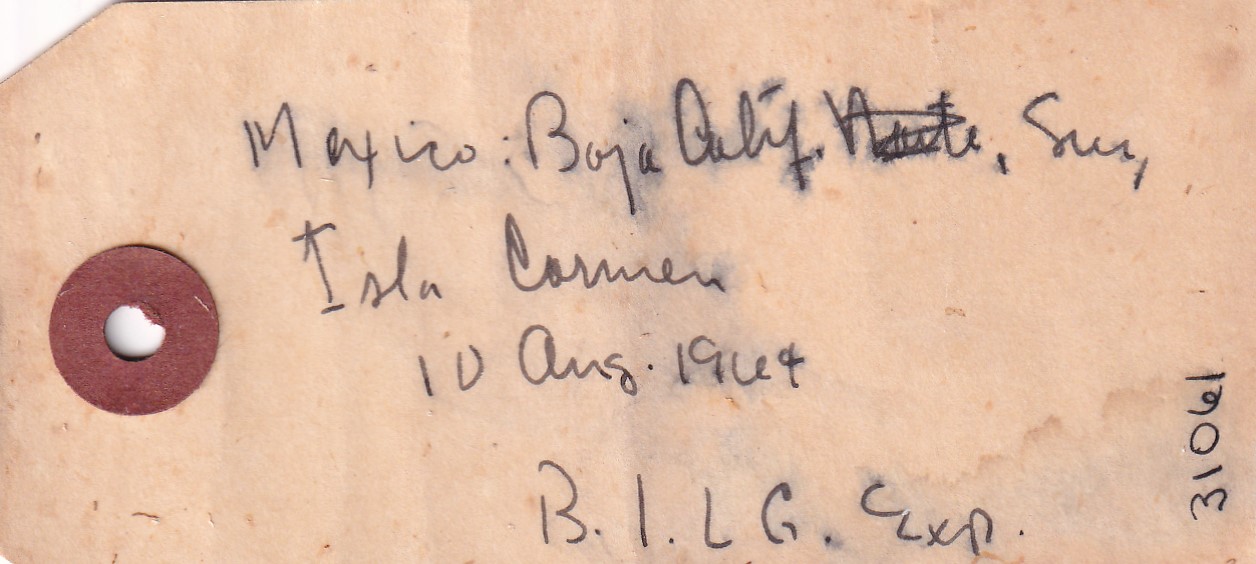 Mexico: Baja Calif. Norte, Sur,
Isla Carmen
10 Aug. 1964
B. I. L G. Exp.
31061